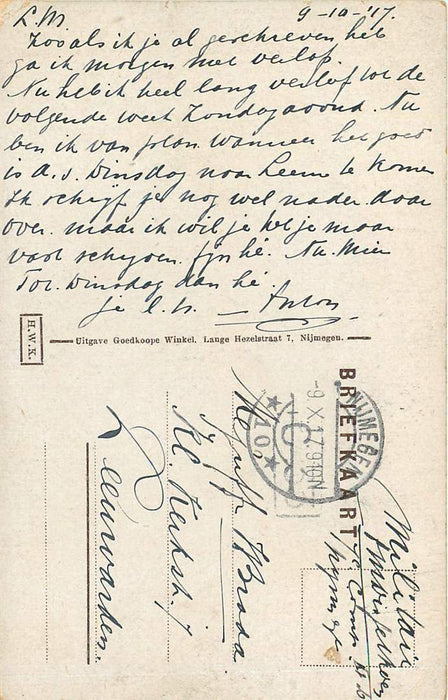 L.M 9-10-'17.
Zooals ik je al geschreven heb
ga ik morgen met verlof.
Nu heb ik heel lang verlof tot de
volgende week Zondagavond. Nu
ben ik van plan wanneer het goed
is a.s. Dinsdag naar Leeuw. te komen
Ik schrijf je nog wel nader daar
over. maar ik wil je het je maar
vast schrijven. fijn hé. Nu Mien
Tot. Dinsdag dan hé.
je l.h. Anton
H.W.K.
Uitgave Goedkoope Winkel. Lange Hezelstraat 7, Nijmegen.
BRIEFKAART
NIJMEGEN
-9.X.17.9-10N
10
Militair
Nijmegen
Mejuff
Kl. Kerkstr.
Leeuwarden.